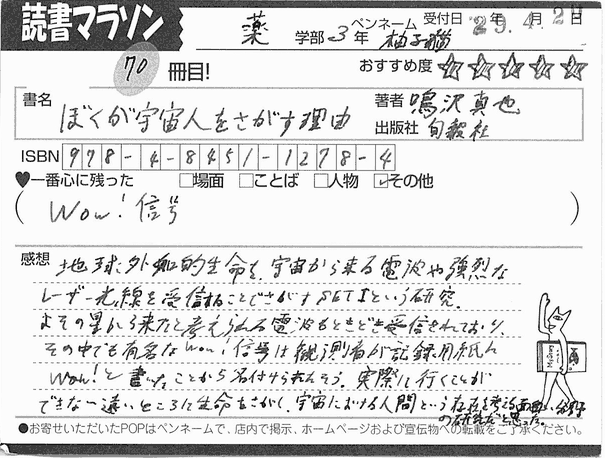 読書マラソン
薬 学部 3年 ペンネーム 受付日 29年 4月 2日
70 冊目! おすすめ度 ☆☆☆☆☆
書名 ぼくが宇宙人をさがす理由 著者 鳴沢真也
出版社 旬報社
ISBN 978-4-8451-1278-4
♥一番心に残った □場面 □ことば □人物 ☑その他
( Wow!信号 )
感想 地球外知的生命を、宇宙から来る電波や強烈な
レーザー光線を受信することでさがすSETIという研究。
よその星から来たと考えられる電波もときどき受信されており、
その中でも有名なWow!信号は観測者が記録用紙に
Wow!と書いたことから名付けられたそう。実際に行くことが
できない遠いところに生命をさがし、宇宙における人間という存在を考える面白い分野
の研究だと思った。
●お寄せいただいたPOPはペンネームで、店内で掲示、ホームページおよび宣伝物への転載をご了承ください。